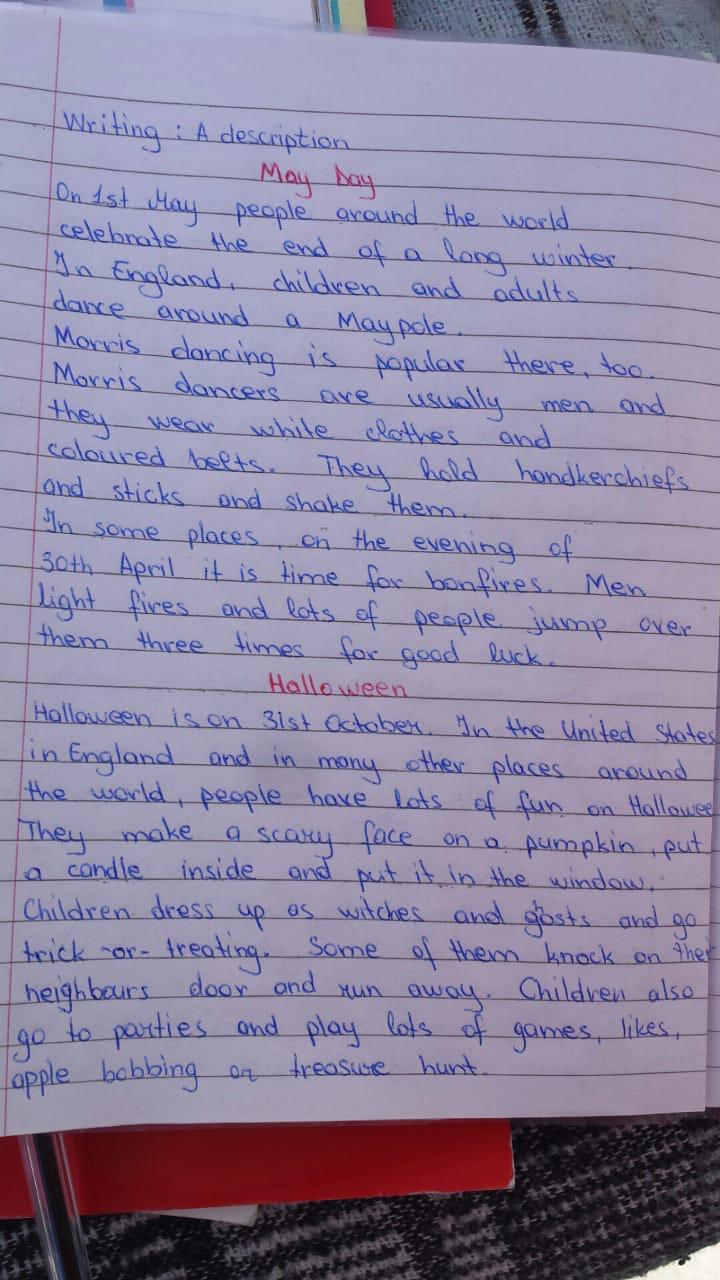 Writing : A description
May Day
On 1st May people around the world
celebrate the end of a long winter.
In England, children and adults
dance around a Maypole.
Morris dancing is popular there, too.
Morris dancers are usually men and
they wear while clothes and
coloured belts. They hold handkerchiefs
and sticks and shake them.
In some places, on the evening of
30th April it is time for bonfires. Men
light fires and lots of people jump over
them three times for good luck.
Halloween
Halloween is on 31st October. In the United States
in England and in many other places around
the world, people have lots of fun on Hallowee
They make a scary face on a pumpkin, put
a candle inside and put it in the window.
Children dress up as witches and gosts and go
trick-or-treating. Some of them knock on thei
neighbours door and run away. Children also
go to parties and play lots of games, likes,
apple bobbing or treasure hunt.